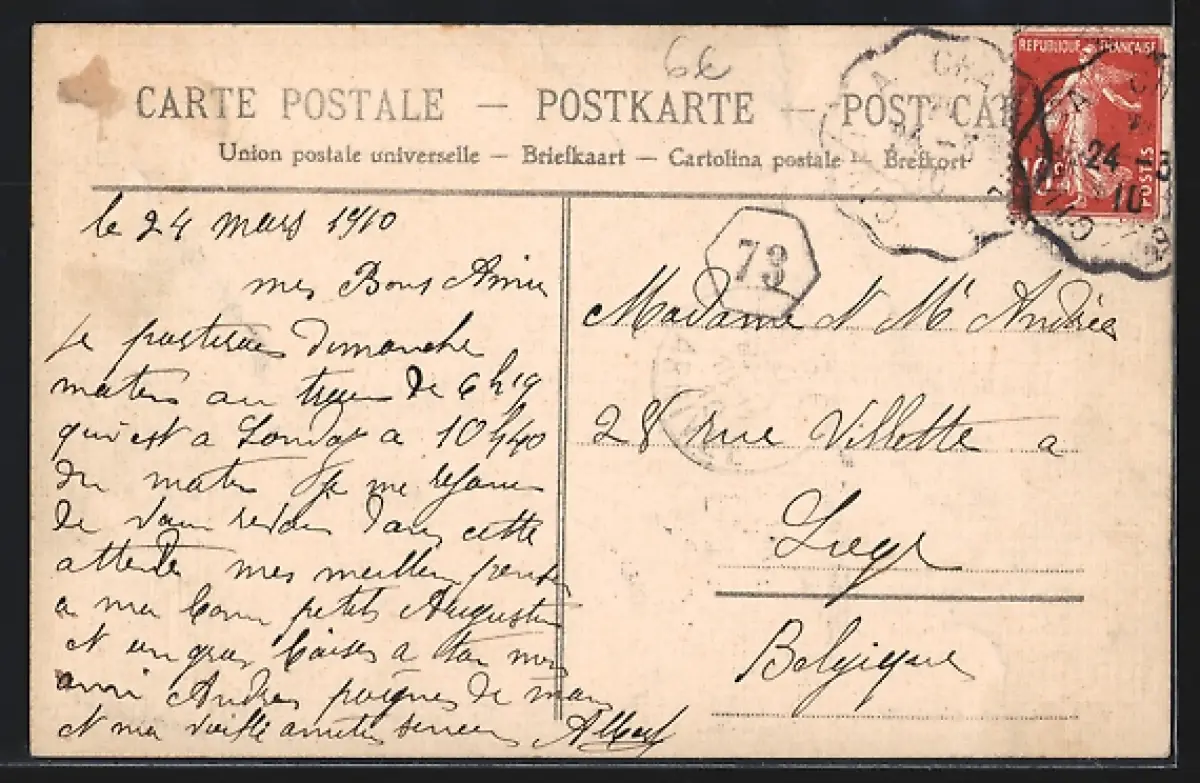 6€
CARTE POSTALE — POSTKARTE — POST CAR
Union postale universelle — Briefkaart — Cartolina postale — Brefkort
REPUBLIQUE FRANÇAISE
10c
POSTES
24 -3
10
73
le 24 mars 1910
mes Bons Amis
je partirais dimanche
matin au train de 6h19
qui est a a 10h40
du matin je me rejouis
de vous revoir dans cette
attente mes meilleur
a ma petits Augustin
et un gros baisés a ton
ami André poignés de main
et ma vieille amitié Albert
Madame et Mr Andrée
28 rue Villette a
Liege
Belgique